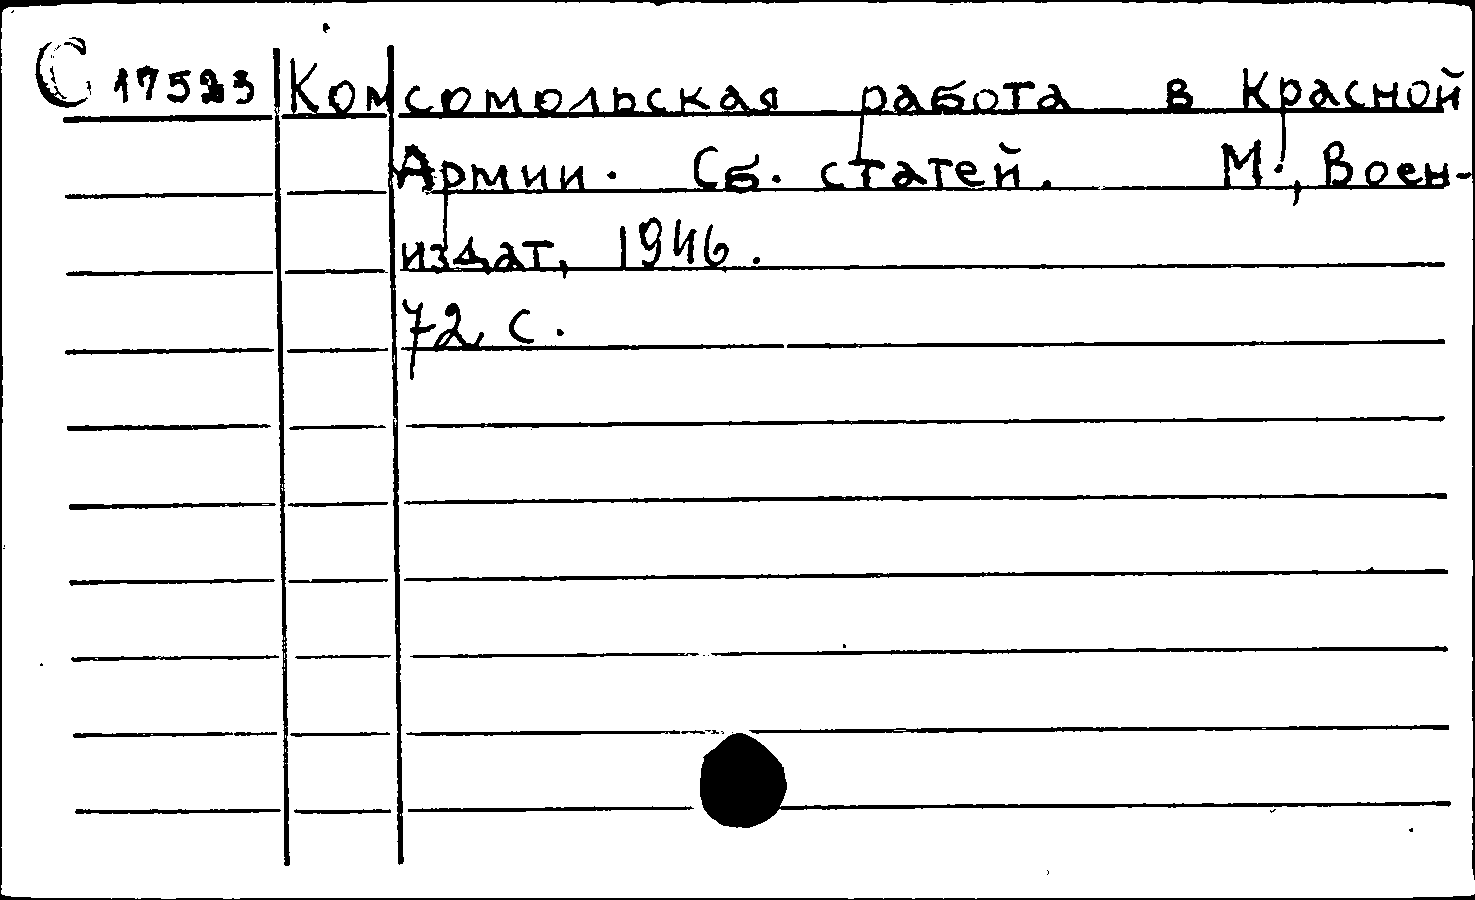 С 17523 Комсомольская работа в Красной
Армии. Сб. статей. М., Воен-
издат, 1946.
72 с.